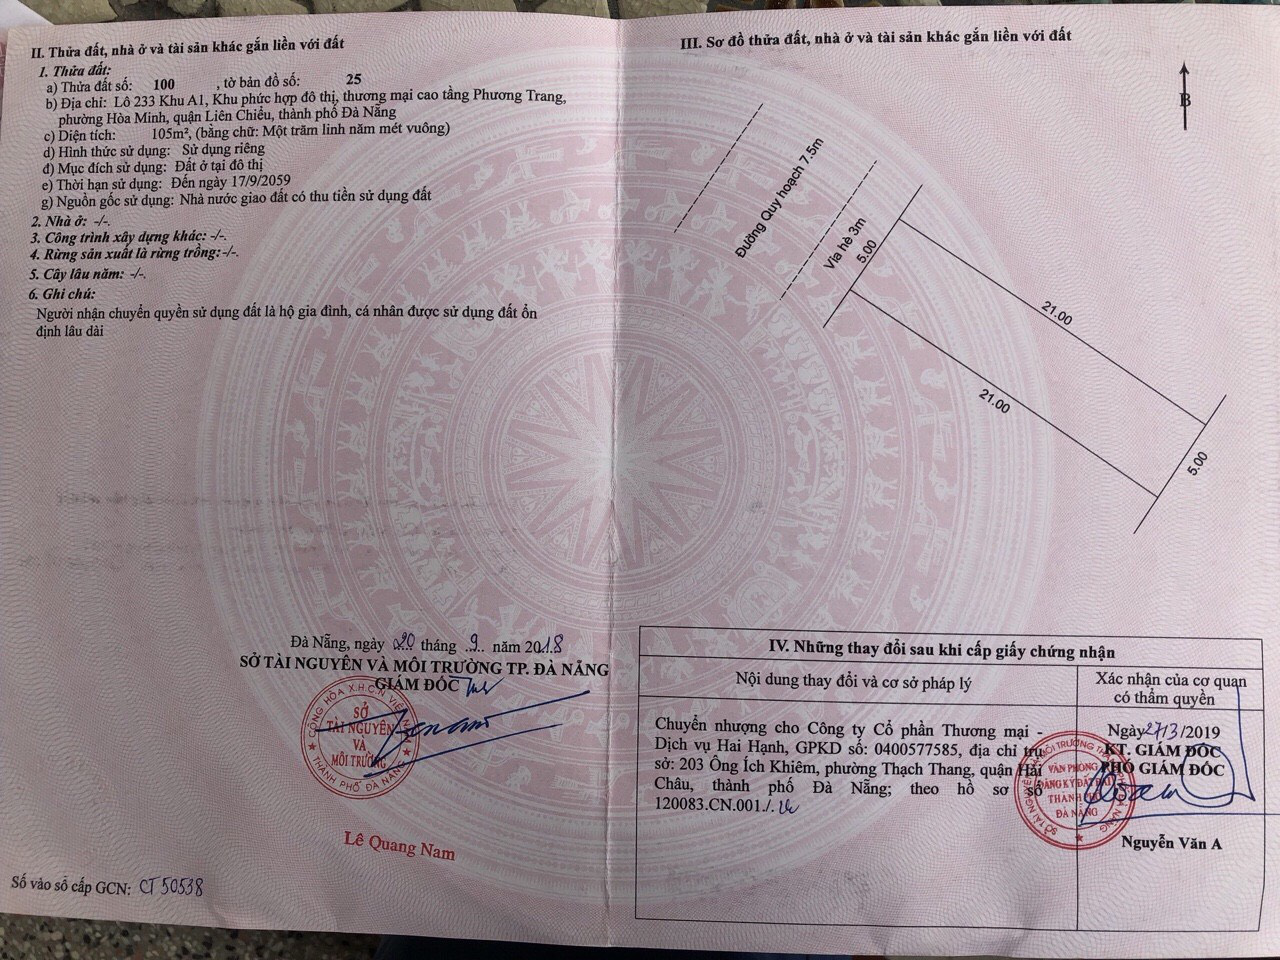 II. Thửa đất, nhà ở và tài sản khác gắn liền với đất
1. Thửa đất:
a) Thửa đất số: 100 , tờ bản đồ số: 25
b) Địa chỉ: Lô 233 Khu A1, Khu phức hợp đô thị, thương mại cao tầng Phương Trang,
phường Hòa Minh, quận Liên Chiểu, thành phố Đà Nẵng
c) Diện tích: 105m², (bằng chữ: Một trăm linh năm mét vuông)
d) Hình thức sử dụng: Sử dụng riêng
đ) Mục đích sử dụng: Đất ở tại đô thị
e) Thời hạn sử dụng: Đến ngày 17/9/2059
g) Nguồn gốc sử dụng: Nhà nước giao đất có thu tiền sử dụng đất
2. Nhà ở: -/-.
3. Công trình xây dựng khác: -/-.
4. Rừng sản xuất là rừng trồng: -/-.
5. Cây lâu năm: -/-.
6. Ghi chú:
Người nhận chuyển quyền sử dụng đất là hộ gia đình, cá nhân được sử dụng đất ổn
định lâu dài
Đà Nẵng, ngày 20 tháng .9.. năm 2018
SỞ TÀI NGUYÊN VÀ MÔI TRƯỜNG TP. ĐÀ NẴNG
GIÁM ĐỐC
CỘNG HÒA X.H.C.N VIỆT NAM
SỞ
TÀI NGUYÊN
VÀ
MÔI TRƯỜNG
THÀNH PHỐ ĐÀ NẴNG
Lê Quang Nam
Số vào sổ cấp GCN: CT 50538
III. Sơ đồ thửa đất, nhà ở và tài sản khác gắn liền với đất
B
Đường Quy hoạch 7.5m
Vỉa hè 3m
5.00
21.00
21.00
5.00
IV. Những thay đổi sau khi cấp giấy chứng nhận
Nội dung thay đổi và cơ sở pháp lý
Xác nhận của cơ quan
có thẩm quyền
Chuyển nhượng cho Công ty Cổ phần Thương mại -
Dịch vụ Hai Hạnh, GPKD số: 0400577585, địa chỉ trụ
sở: 203 Ông Ích Khiêm, phường Thạch Thang, quận Hải
Châu, thành phố Đà Nẵng; theo hồ sơ số
120083.CN.001./.
Ngày 27/3/2019
KT. GIÁM ĐỐC
PHÓ GIÁM ĐỐC
VĂN PHÒNG
ĐĂNG KÝ ĐẤT ĐAI
THÀNH PHỐ
ĐÀ NẴNG
Nguyễn Văn A